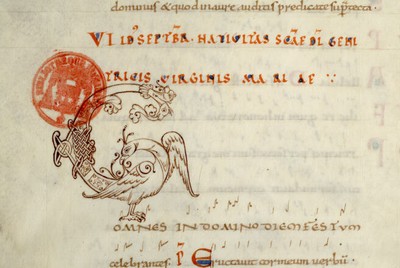 dominus & quod in aure auditis predicate sup tecta.
VI ID SEPTBR. NATIVITAS SCAE DI GENI
TRICIS VIRGINIS MARIAE
OMNES IN DOMINO DIEM FESTUM
celebrantes. P Eructauit cor meum verbū.